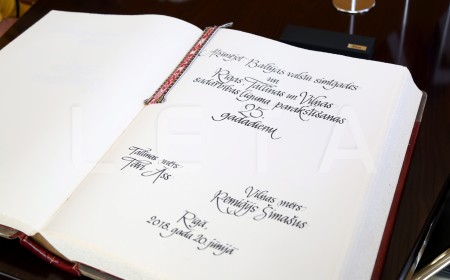 Atzīmējot Baltijas valstu simtgades
un
Rīgas, Tallinas un Viļņas
sadarbības līguma parakstīšanas
25.
gadadienu
Tallinas mērs
Tāvi Āss
Viļņas mērs
Remiģijs Šimašus
Rīgā,
2018. gada 20. jūnijā
LETA